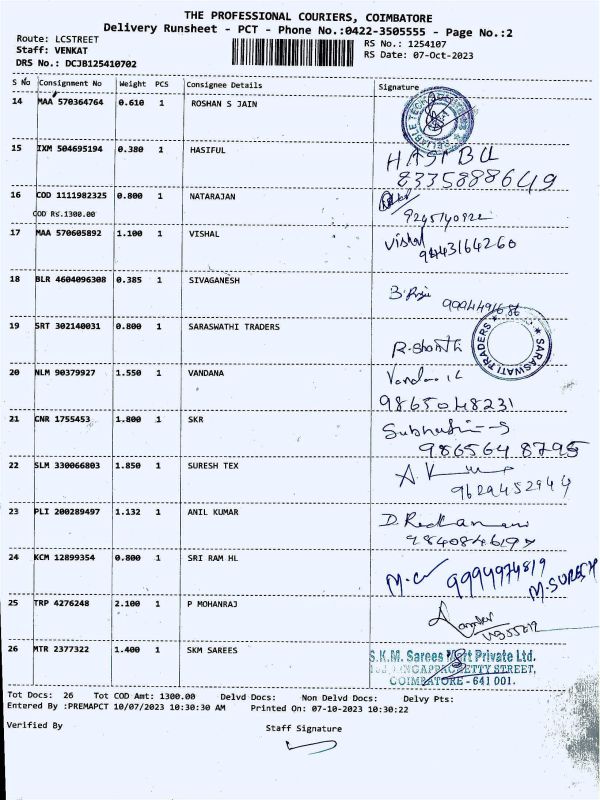 THE PROFESSIONAL COURIERS, COIMBATORE
Delivery Runsheet - PCT - Phone No.:0422-3505555 - Page No.:2
Route: LCSTREET
Staff: VENKAT
DRS No.: DCJB125410702
RS No.: 1254107
RS Date: 07-Oct-2023
S No Consignment No Weight PCS Consignee Details Signature
14 MAA 570364764 0.610 1 ROSHAN S JAIN
15 IXM 504695194 0.380 1 HASIFUL
8335888649
16 COD 1111982325 0.800 1 NATARAJAN
COD Rs.1300.00
17 MAA 570605892 1.100 1 VISHAL Vishal
9443164260
18 BLR 4604096308 0.385 1 SIVAGANESH
19 SRT 302140031 0.800 1 SARASWATHI TRADERS
SARASWATI TRADERS
20 NLM 90379927 1.550 1 VANDANA
9865048231
21 CNR 1755453 1.800 1 SKR
9865648795
22 SLM 330066803 1.850 1 SURESH TEX
9629452944
23 PLI 200289497 1.132 1 ANIL KUMAR
24 KCM 12899354 0.800 1 SRI RAM HL
9994974819 M.SURESH
25 TRP 4276248 2.100 1 P MOHANRAJ
26 MTR 2377322 1.400 1 SKM SAREES
S.K.M. Sarees Mart Private Ltd.
STREET,
COIMBATORE - 641 001.
Tot Docs: 26 Tot COD Amt: 1300.00 Delvd Docs: Non Delvd Docs: Delvy Pts:
Entered By :PREMAPCT 10/07/2023 10:30:30 AM Printed On: 07-10-2023 10:30:22
Verified By Staff Signature